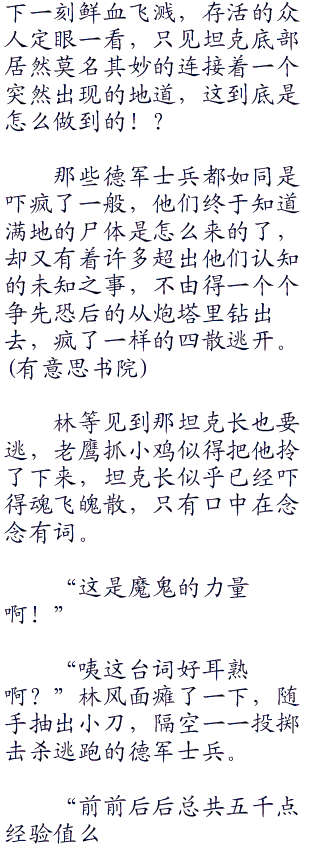 下一刻鲜血飞溅，存活的众
人定眼一看，只见坦克底部
居然莫名其妙的连接着一个
突然出现的地道，这到底是
怎么做到的！？
那些德军士兵都如同是
吓疯了一般，他们终于知道
满地的尸体是怎么来的了，
却又有着许多超出他们认知
的未知之事，不由得一个个
争先恐后的从炮塔里钻出
去，疯了一样的四散逃开。
(有意思书院)
林等见到那坦克长也要
逃，老鹰抓小鸡似得把他拎
了下来，坦克长似乎已经吓
得魂飞魄散，只有口中在念
念有词。
“这是魔鬼的力量
啊！”
“咦这台词好耳熟
啊？”林风面瘫了一下，随
手抽出小刀，隔空一一投掷
击杀逃跑的德军士兵。
“前前后后总共五千点
经验值么